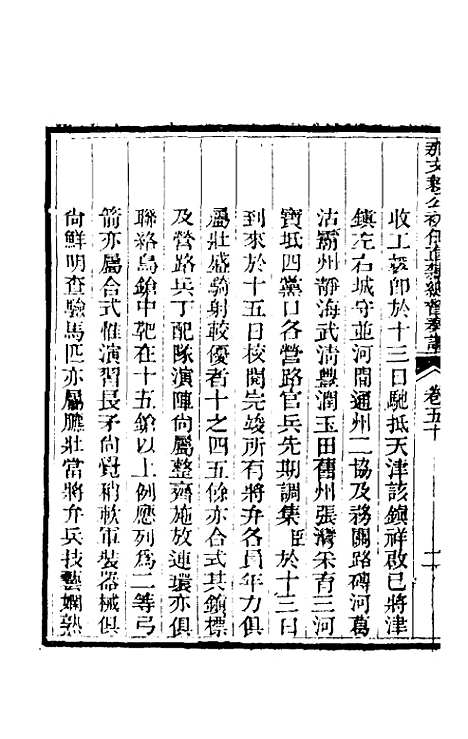 那文毅公初任直隸總督奏議 卷五十
收工竣即於十三日馳抵天津該鎮祥啟已將津
鎮左右城守並河間通州二協及務關路磚河葛
沽霸州靜海武清豐潤玉田舊州張灣采育三河
寶坻四黨口各營路官兵先期調集臣於十三日
到來於十五日校閱完竣所有將弁各員年力俱
屬壯盛騎射較優者十之四五餘亦合式其鎮標
及營路兵丁配隊演陣尚屬整齊施放連環亦俱
聯絡鳥鎗中靶在十五鎗以上例應列為二等弓
箭亦屬合式惟演習長矛尚覺稍軟軍裝器械俱
尚鮮明查驗馬匹亦屬膘壯當將弁兵技藝嫻熟